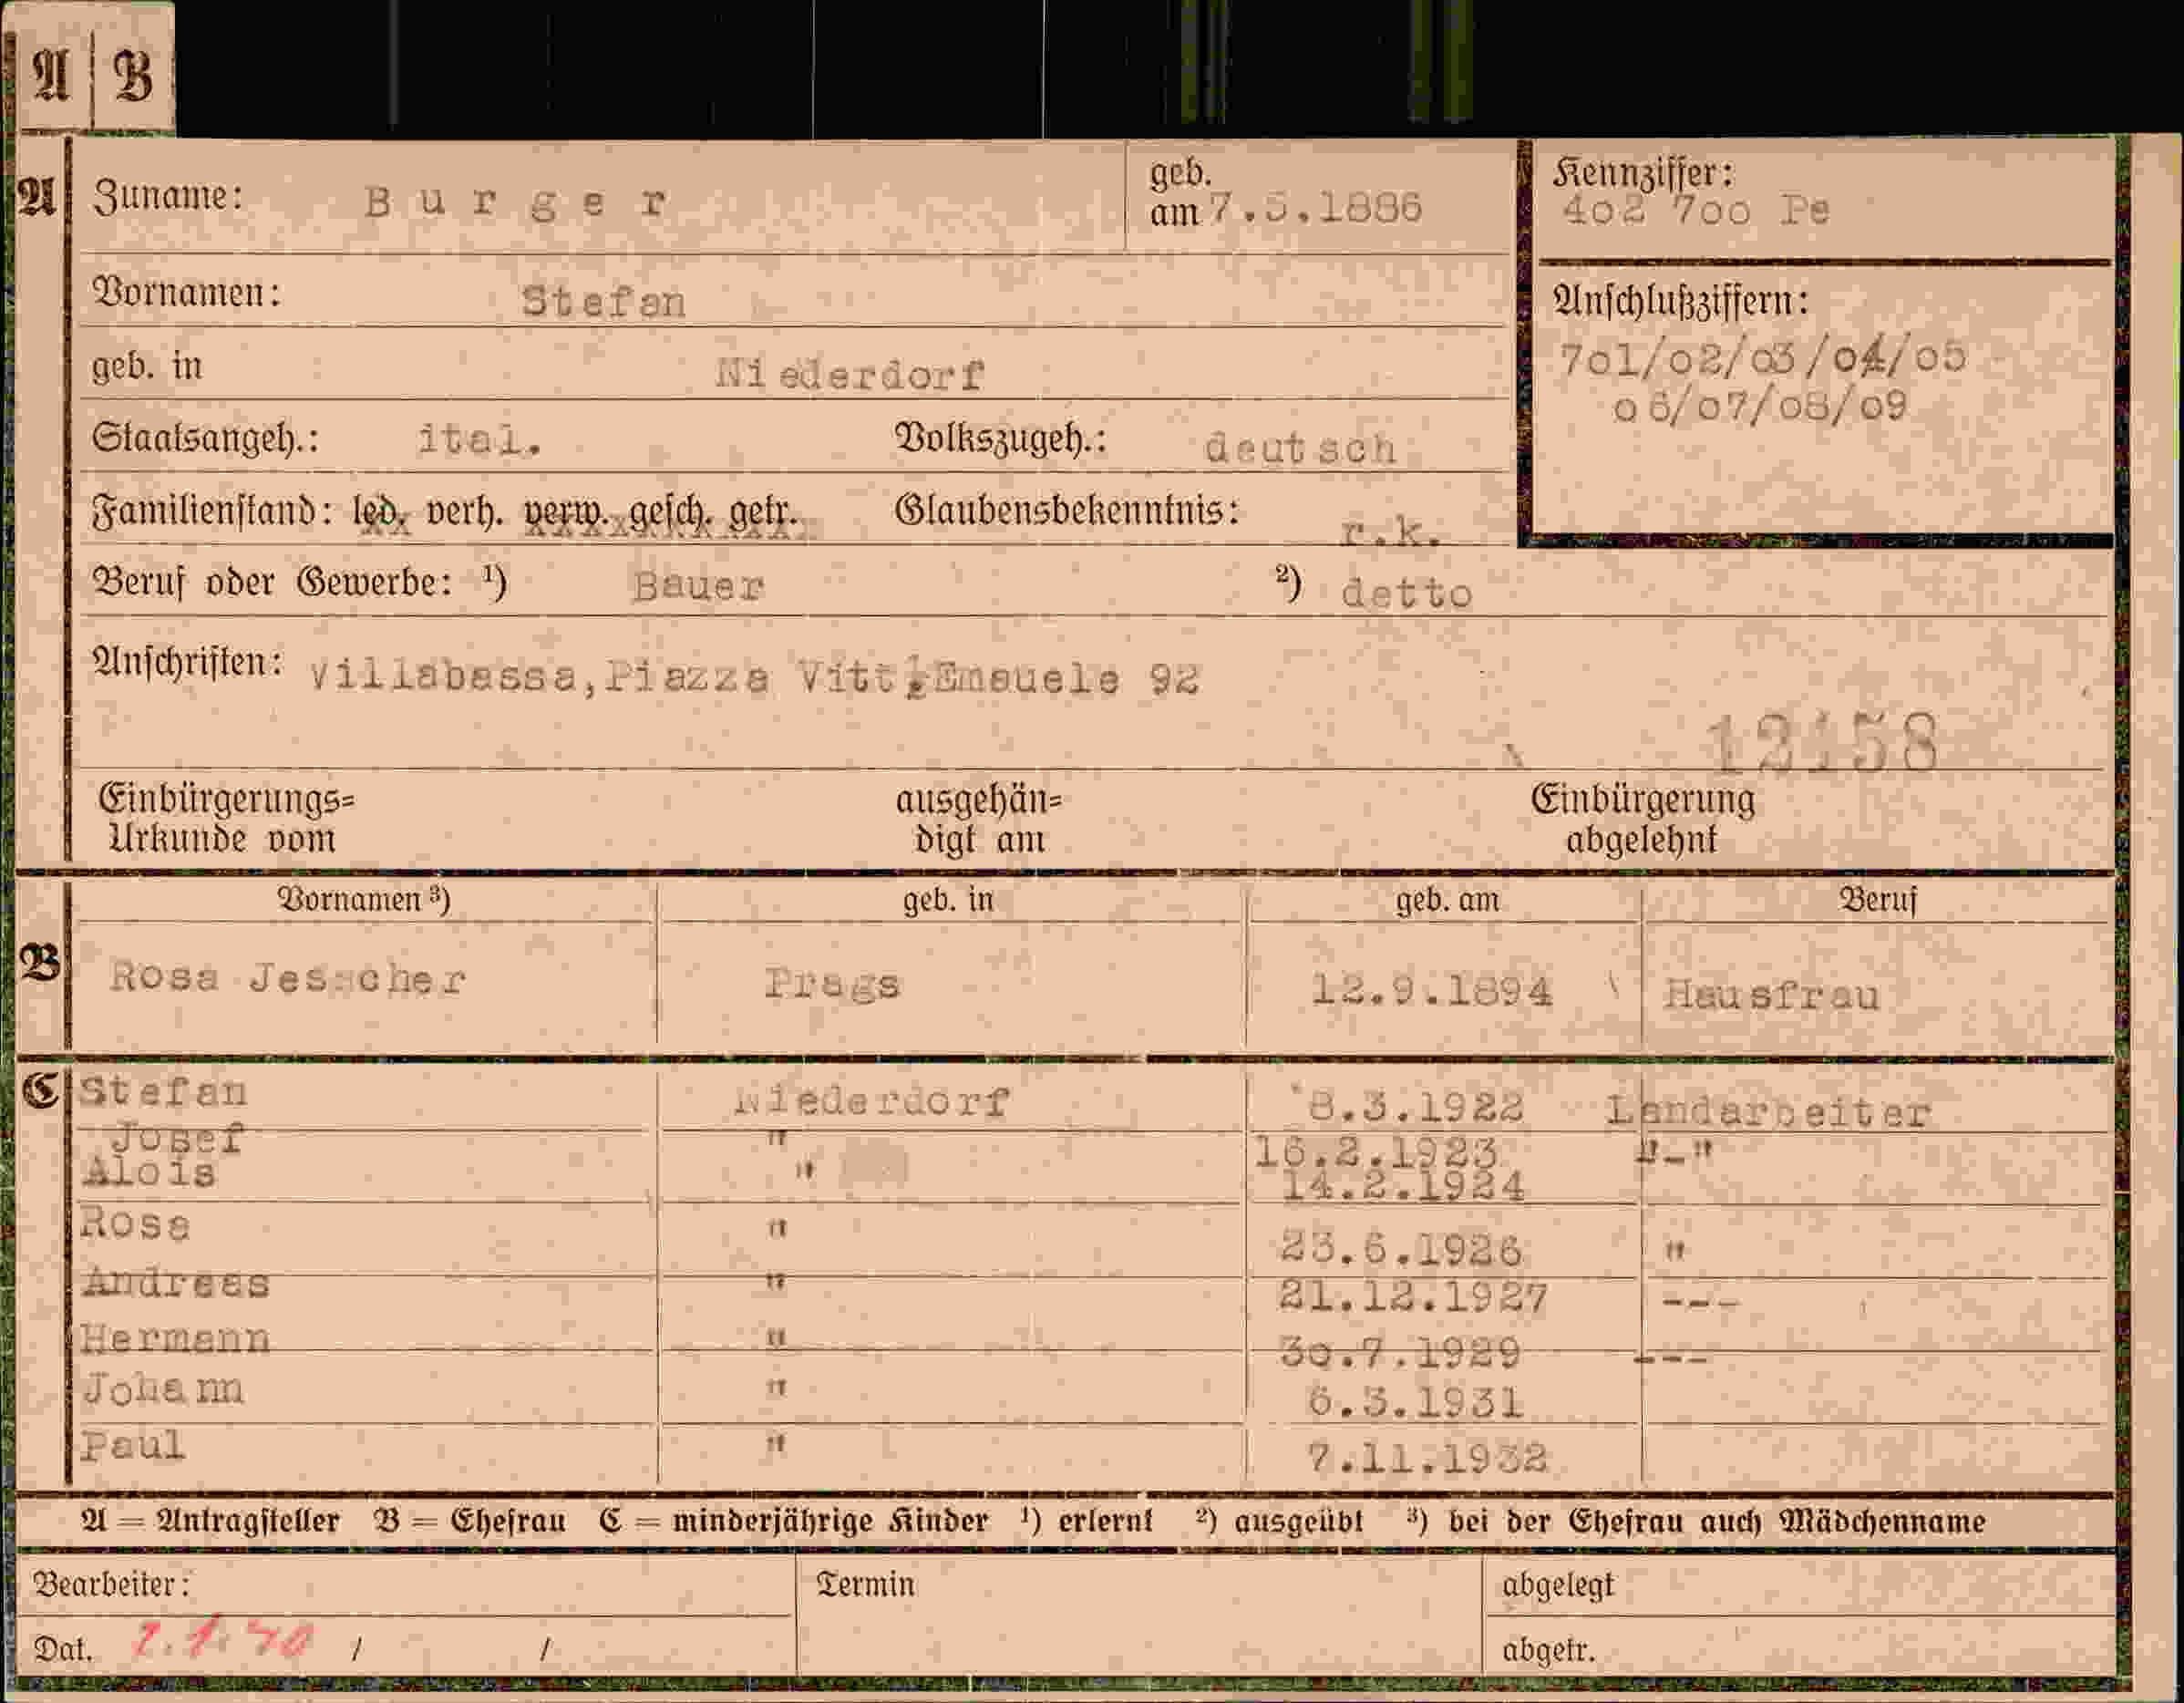 A B
A Zuname: Burger geb. am 7.5.1886 Kennziffer: 402 700 Pe
Vornamen: Stefan Anschlußziffern:
geb. in Niederdorf 701/02/03/04/05
06/07/08/09
Staatsangeh.: ital. Volkszugeh.: deutsch
Familienstand: led. verh. verw. gesch. getr. Glaubensbekenntnis: r.k.
Beruf oder Gewerbe: ¹) Bauer ²) detto
Anschriften: Villabassa, Piazza Vitt. Emauele 92
12158
Einbürgerungs= Urkunde vom ausgehän= digt am Einbürgerung abgelehnt
Vornamen ³) geb. in geb. am Beruf
B Rosa Prags 12.9.1894 Hausfrau
C Stefan Niederdorf 8.3.1922 Landarbeiter
Josef " 16.2.1923 "-"
Alois " 14.2.1924
Rosa " 23.6.1926 "
Andreas " 21.12.1927 ---
Hermann " 30.7.1929 ---
Johann " 6.3.1931
Paul " 7.11.1932
A = Antragsteller B = Ehefrau C = minderjährige Kinder ¹) erlernt ²) ausgeübt ³) bei der Ehefrau auch Mädchenname
Bearbeiter: Termin abgelegt
Dat. / / abgetr.